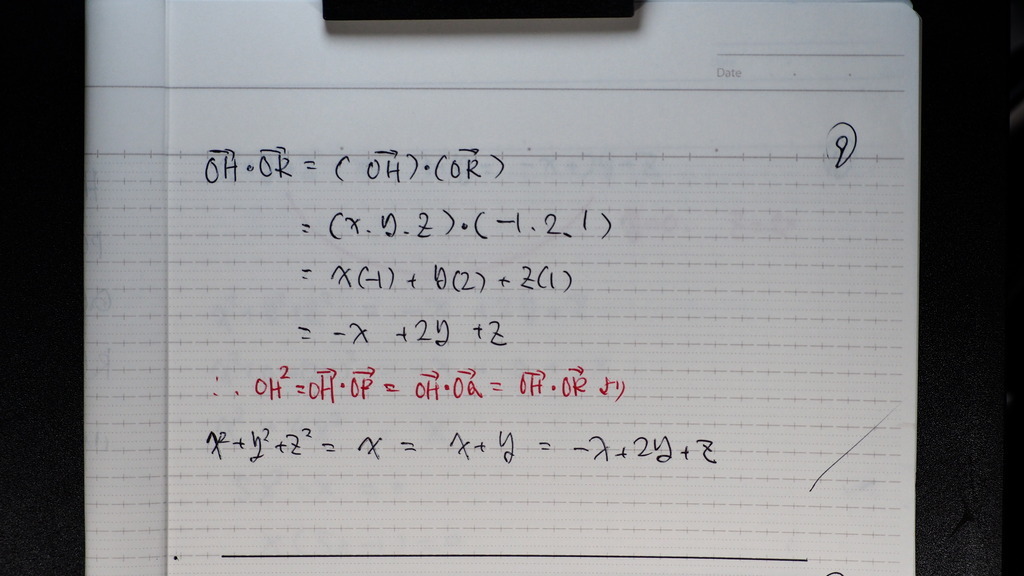 Date
9
OH・OR = (OH)・(OR)
= (x. y. z)・(-1. 2. 1)
= x(-1) + y(2) + z(1)
= -x + 2y + z
∴ OH² = OH・OP = OH・OQ = OH・OR より
x² + y² + z² = x = x + y = -x + 2y + z